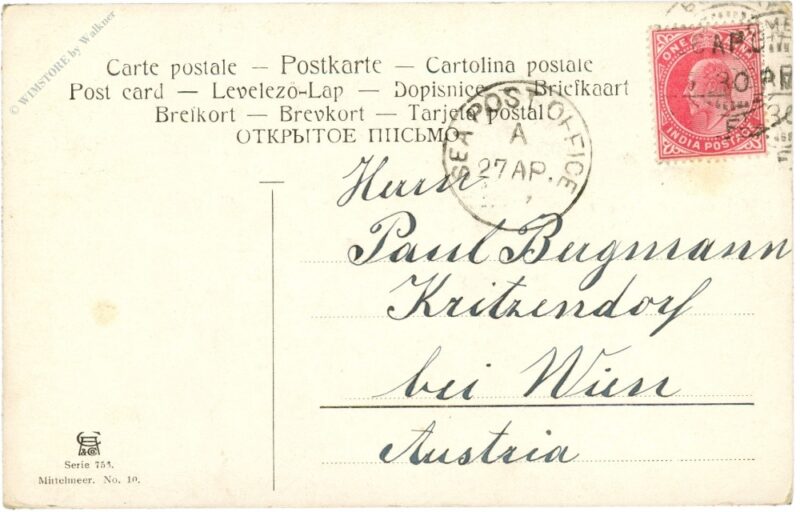 © WIMSTORE by Walkner
Carte postale — Postkarte — Cartolina postale
Post card — Levelező-Lap — Dopisnice — Briefkaart
Brefkort — Brevkort — Tarjeta postal
ОТКРЫТОЕ ПИСЬМО
SEA POST OFFICE
A
27 AP.
ONE
INDIA POST
30 AP
30
Herrn
Paul Bergmann
Kritzendorf
bei Wien
Austria
Serie 751.
Mittelmeer. No. 10.